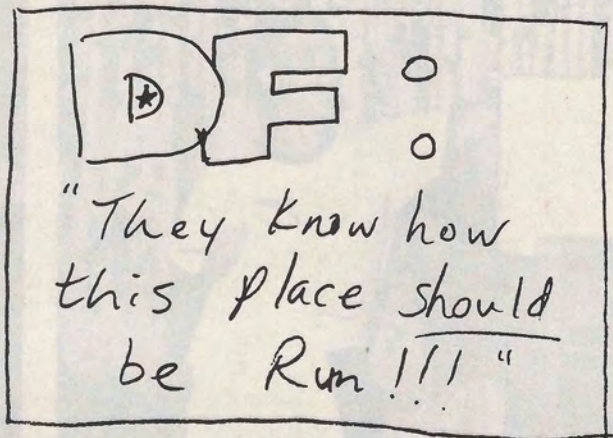 DF:
"They Know how
this place should
be Run!!!"